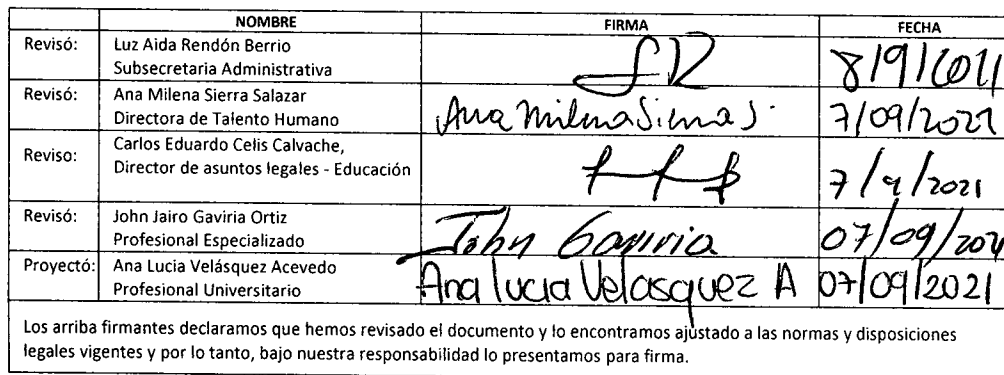 NOMBRE FIRMA FECHA
Revisó: Luz Aida Rendón Berrio
Subsecretaria Administrativa
8/9/2021
Revisó: Ana Milena Sierra Salazar
Directora de Talento Humano
Ana Milena Sierra S. 7/09/2021
Reviso: Carlos Eduardo Celis Calvache,
Director de asuntos legales - Educación
7/9/2021
Revisó: John Jairo Gaviria Ortiz
Profesional Especializado
John Gaviria 07/09/2021
Proyectó: Ana Lucia Velásquez Acevedo
Profesional Universitario
Ana lucia Velasquez A 07/09/2021
Los arriba firmantes declaramos que hemos revisado el documento y lo encontramos ajustado a las normas y disposiciones
legales vigentes y por lo tanto, bajo nuestra responsabilidad lo presentamos para firma.